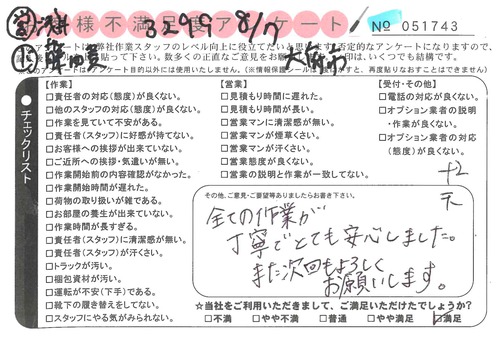 お客様不満足度アンケート
3299 8/7
大阪市
No 051743
のアンケートは、弊社作業スタッフのレベル向上に役立てたいと思います。否定的なアンケートになりますので、
貼って下さい。数多くの正直なご意見をお願い 印は、いくつでも結構です。
のアンケートは目的以外には使用いたしません。(情報保護シール
再度貼りなおすことはできません)
チェックリスト
【作業】
□責任者の対応(態度)が良くない。
□他のスタッフの対応(態度)が良くない。
□作業を見ていて不安がある。
□責任者(スタッフ)に好感が持てない。
□お客様への挨拶が出来ていない。
□ご近所への挨拶・気遣いが無い。
□作業開始前の内容確認がなかった。
□作業開始時間が遅れた。
□荷物の取り扱いが雑である。
□お部屋の養生が出来ていない。
□作業時間が長すぎる。
□責任者(スタッフ)に清潔感が無い。
□責任者(スタッフ)が汗くさい。
□トラックが汚い。
□梱包資材が汚い。
□運転が不安(下手)である。
□靴下の履き替えをしてない。
□スタッフにやる気がみられない。
【営業】
□見積もり時間に遅れた。
□見積もり時間が長い。
□営業マンに清潔感が無い。
□営業マンが煙草くさい。
□営業マンが汗くさい。
□営業態度が良くない。
□営業の説明と作業が一致してない。
【受付・その他】
□電話の対応が良くない。
□オプション業者の説明
・作業が良くない。
□オプション業者の対応
(態度)が良くない。
その他、ご意見・ご要望等ありましたらお書き下さい。
全ての作業が
丁寧でとても安心しました。
また次回もよろしく
お願いします。
☆当社をご利用いただきまして、ご満足いただけたでしょうか?
□不満 □やや不満 □普通 □やや満足 □満足